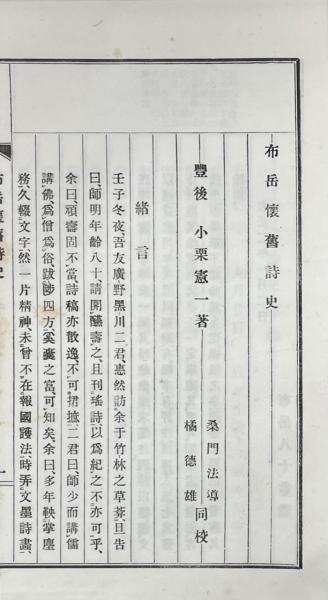 布岳懷舊詩史
豐後 小栗憲一著
桑門法導
橘德雄
同校
緒言
壬子冬夜、吾友廣野黑川二君、惠然訪余于竹林之草莽、且告
曰、師明年齡八十、請開醼壽之、且刊瑤詩、以爲紀之、不亦可乎、
余曰、頑壽固不當、詩稿亦散逸、不可捃摭、二君曰、師少而講儒
講佛、爲僧爲俗、跋涉四方、奚囊之富、可知矣、余曰、多年鞅掌塵
務、久輟文字、然一片精神、未曾不在報國護法、時弄文墨詩畫、
布岳懷舊詩史
一